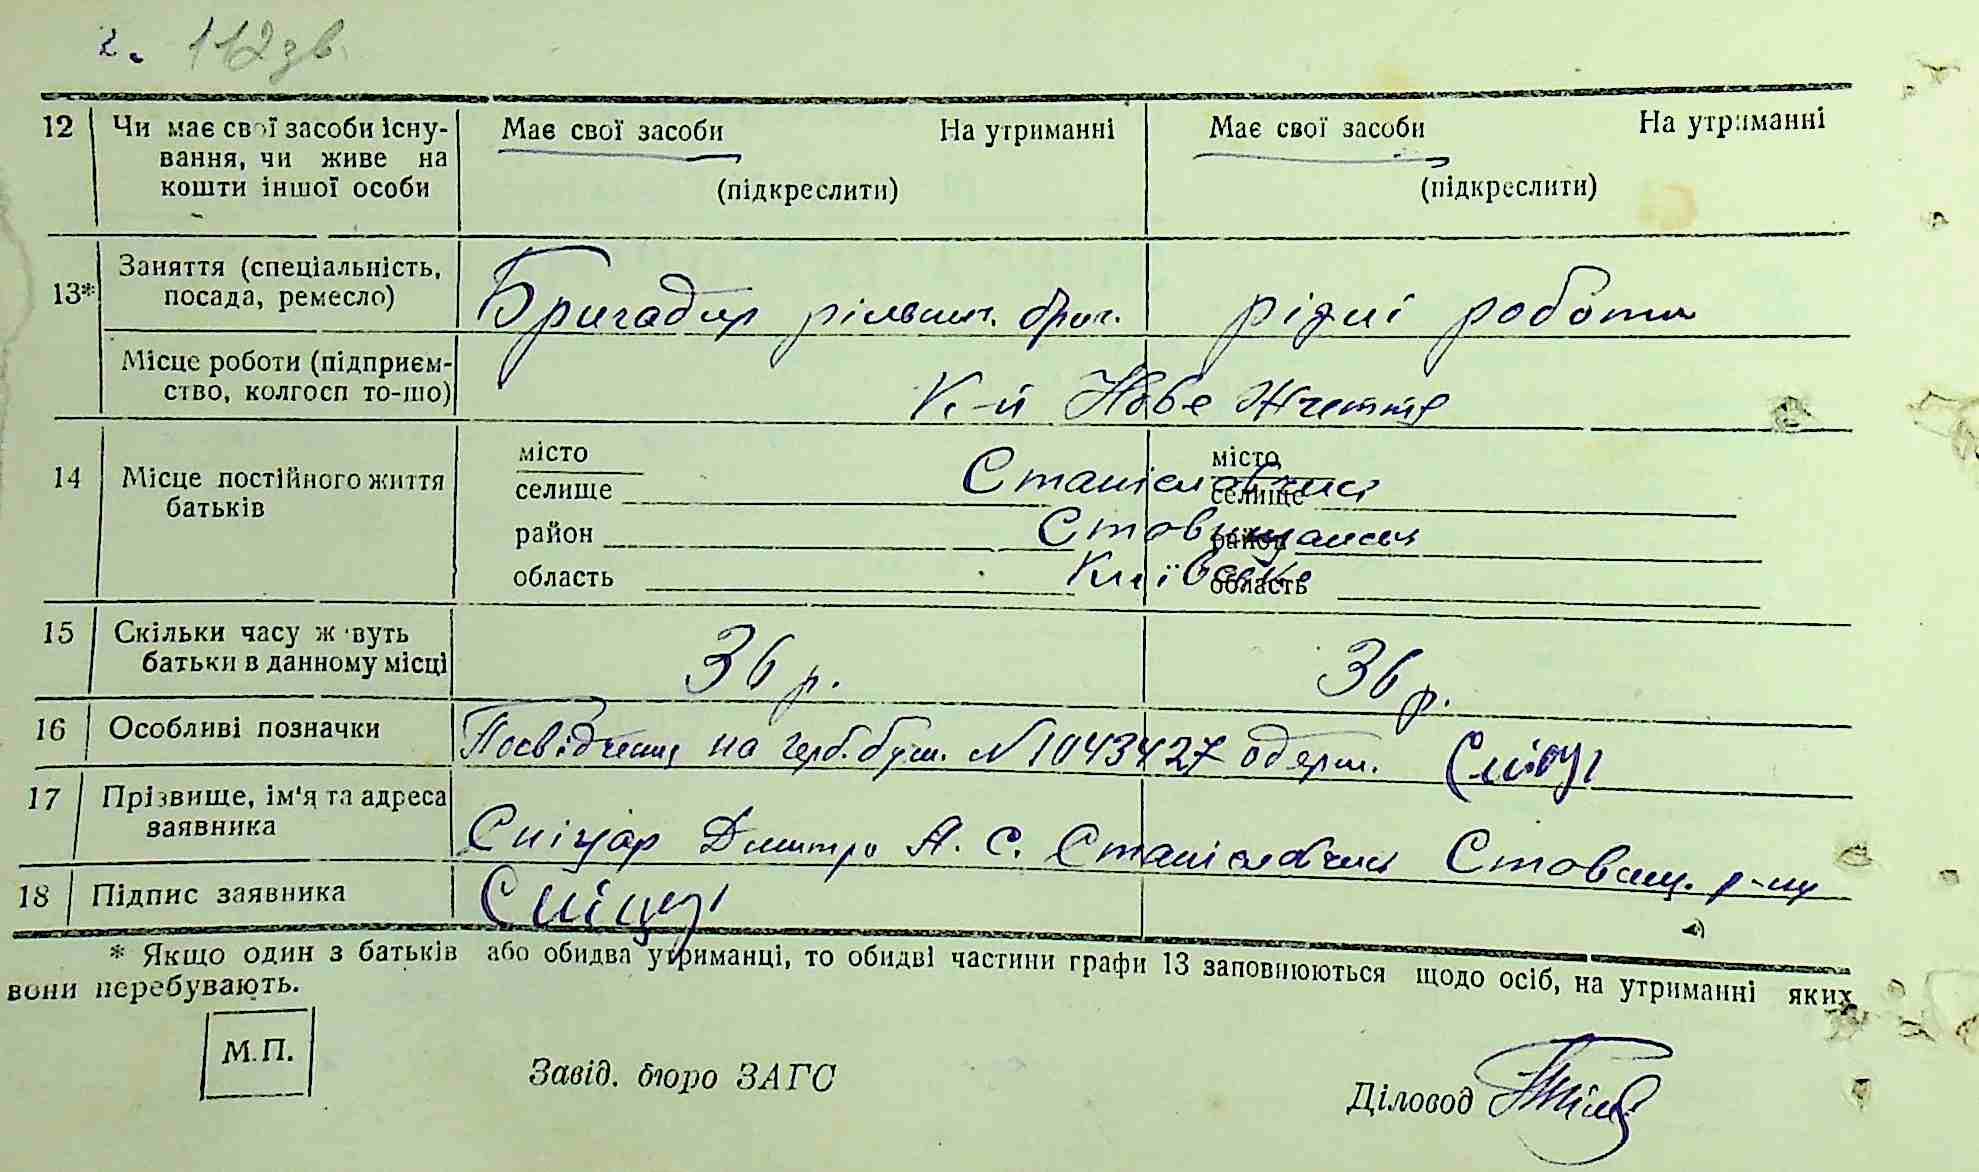 2. 112 зв.
12 Чи має свої засоби існу- Має свої засоби На утриманні Має свої засоби На утриманні
вання, чи живе на
кошти іншої особи (підкреслити) (підкреслити)
13* Заняття (спеціальність,
посада, ремесло) Бригадир рільнич. бриг. різні роботи
Місце роботи (підприєм-
ство, колгосп то-що) К-п Нове Життя
14 Місце постійного життя
батьків
місто місто
селище Станіславчик селище
район Ставищанськ район
область Київська область
15 Скільки часу живуть
батьки в данному місці 36 р. 36 р.
16 Особливі позначки Посвідчення на герб. бум. № 1043427 одерж.
17 Прізвище, ім'я та адреса
заявника Снігур Дмитро А. С. Станіславчик Ставищ. р-ну
18 Підпис заявника
* Якщо один з батьків або обидва утриманці, то обидві частини графи 13 заповнюються щодо осіб, на утриманні яких
вони перебувають.
М.П.
Завід. бюро ЗАГС
Діловод